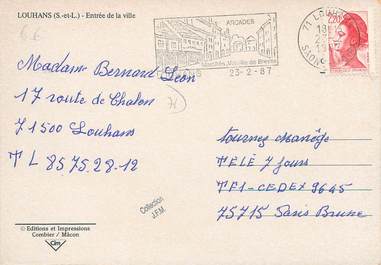 LOUHANS (S.-et-L.) - Entrée de la ville
ARCADES
23-2-87
71 LOUHANS
18
SAONE
2,20
Madame Bernard Leon
17 route de Chalon
71500 Louhans
TL 85-75-28-12
tournez manège
TELE 7 Jours
TF1-CEDEX 9645
75715 Paris Brune
Collection
J.F.M.
© Editions et Impressions
Combier / Mâcon
Cim